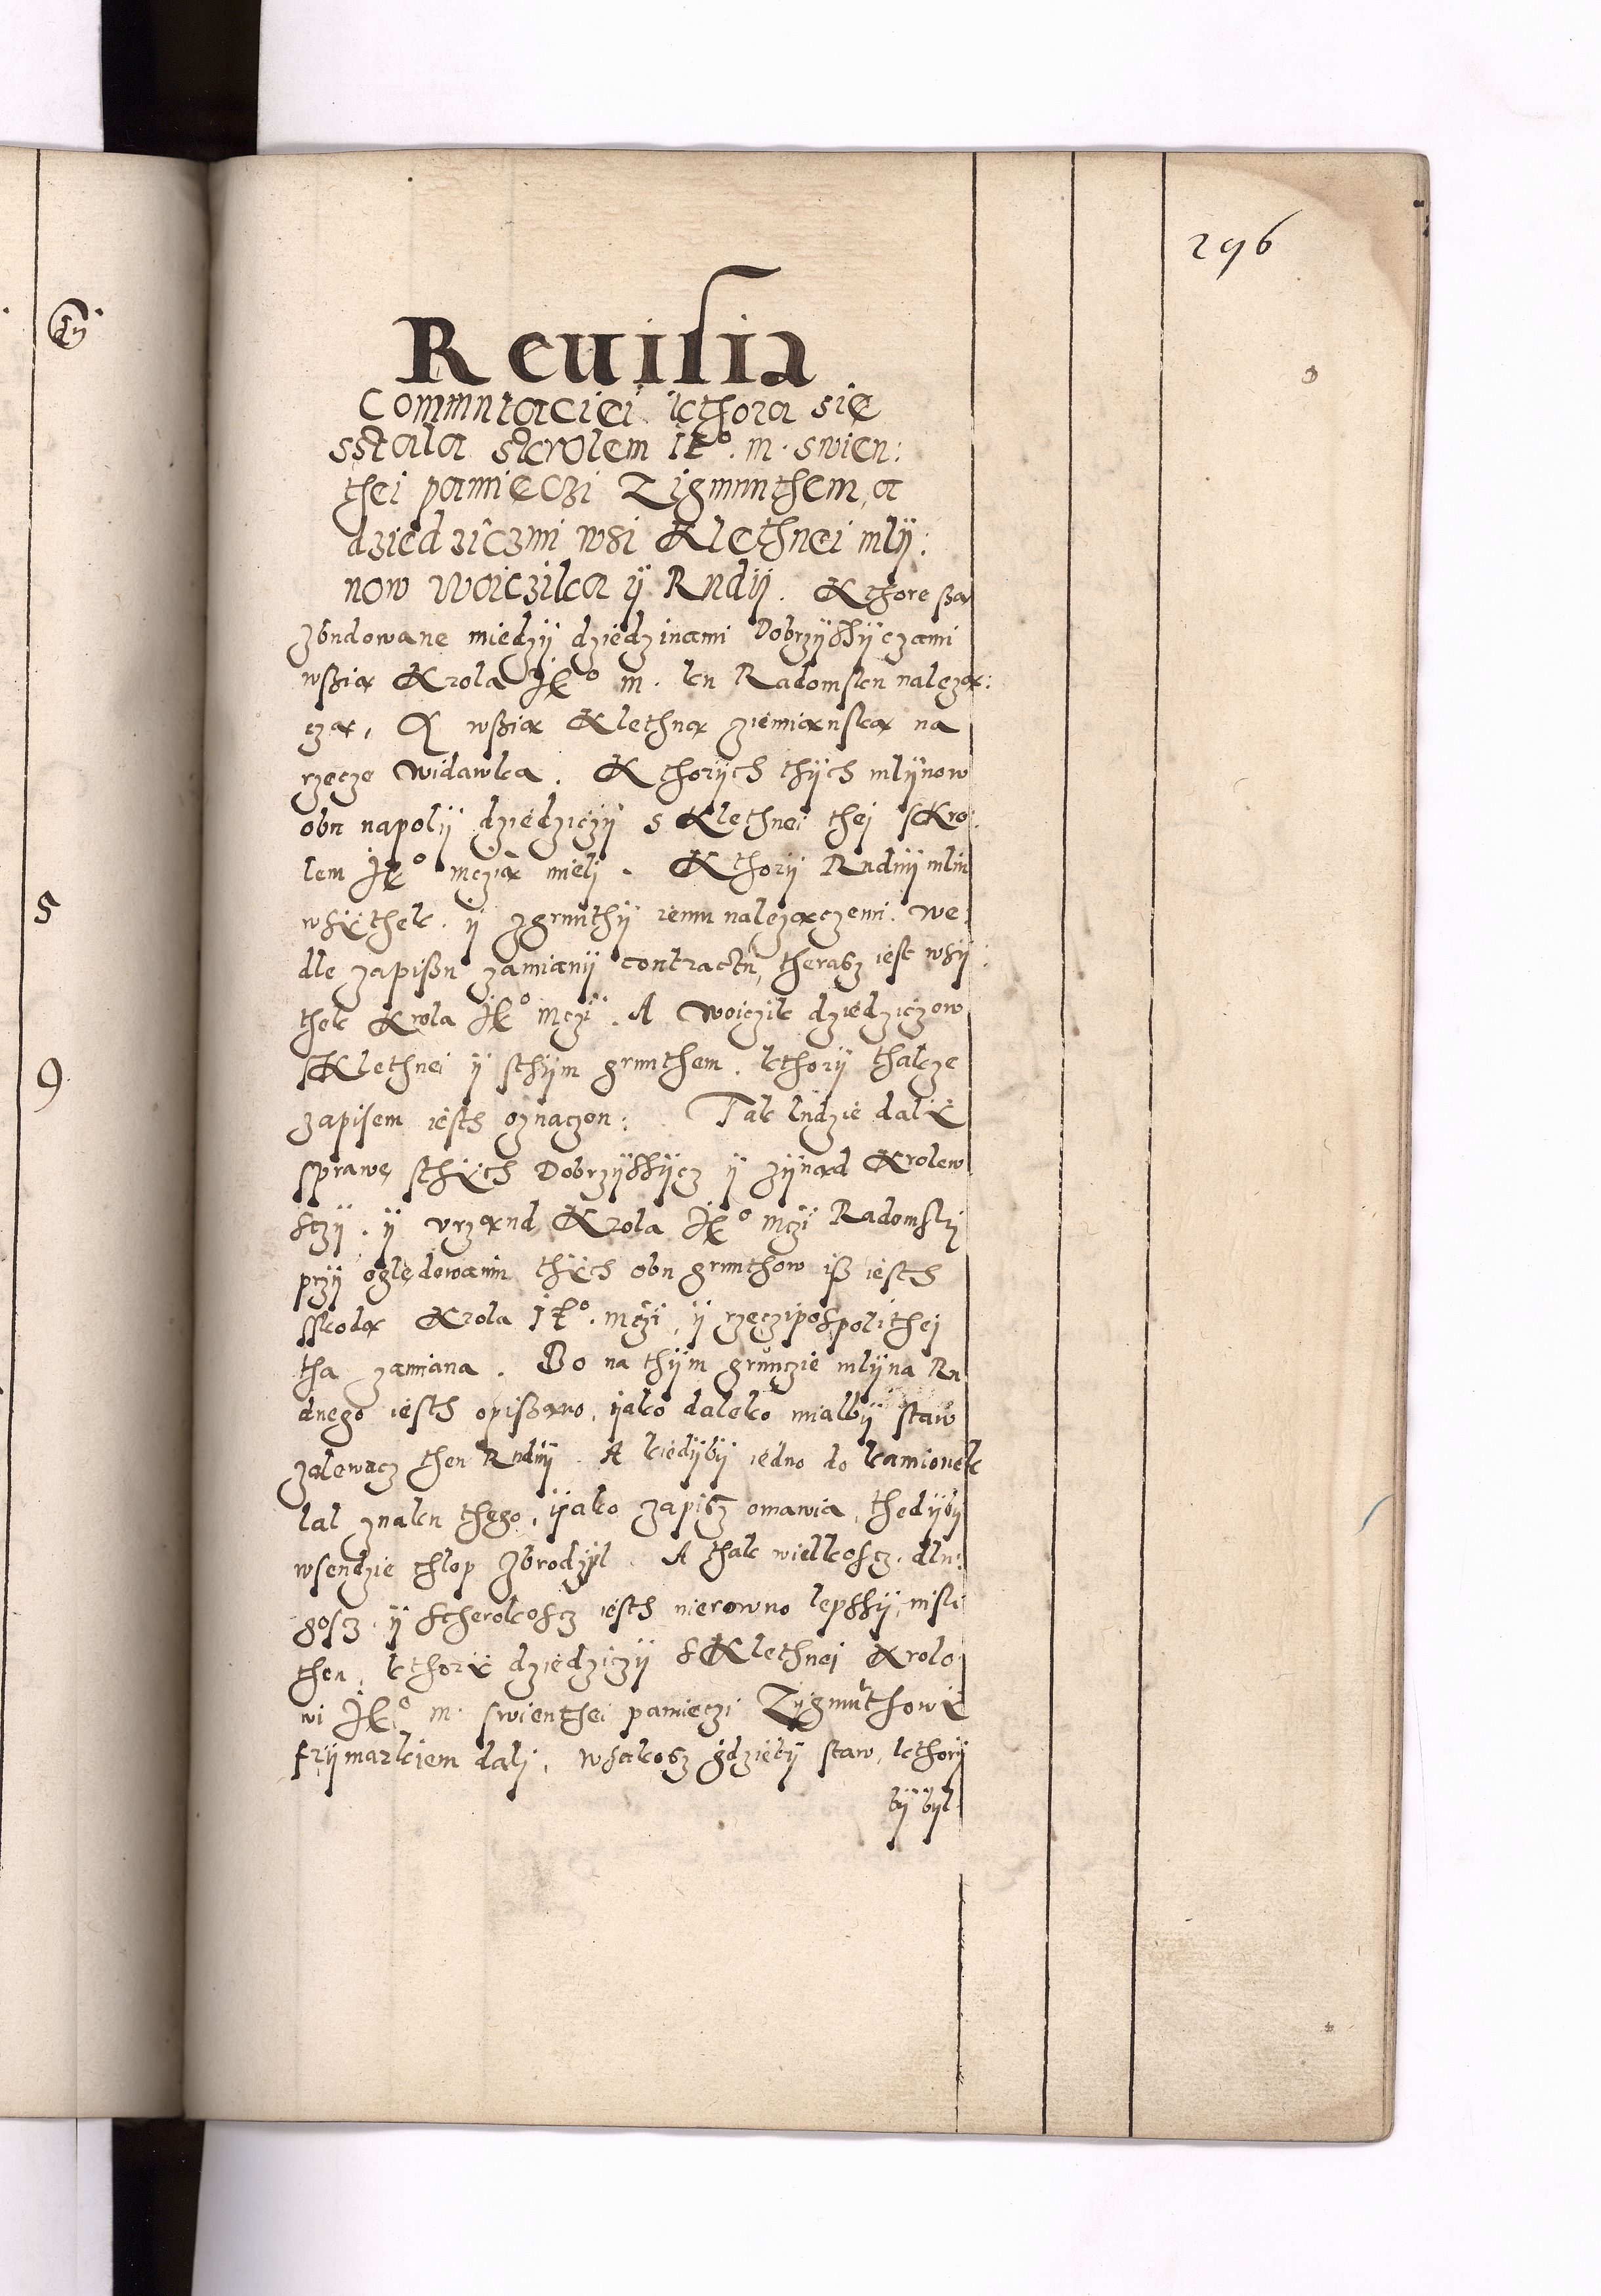 296
Reuisia
Commutaciei kthora się
sstala skrolem JKo. m. swien:
thei pamięczi Zigmunthem, a
dziedziczmi wsi Klethnei mlÿ:
now Woiczika ÿ Rudÿ. Kthore ßą
Zbudowane miedzÿ dziedzinami Dobrzÿssÿczami
wßią Krola JKo m. ku Radomsku należą:
czą, A wßią Klethną ziemiąnską na
rzecze Widawka. Kthorÿch thÿch mlÿnow
obu napolÿ dziedziczÿ s Klethnei thej sKro:
lem JKo mcżią mieli. Kthorÿ Rudnÿ mlin
wsÿthek. ÿ zgrunthÿ iemu należączemi. we:
dle zapißu zamianÿ contractu, therasz iest wsÿ:
thek Krola JKo mczi. A Woiczik dziedziczow
sKlethnei ÿ sthÿm grunthem. kthorÿ thakze
zapisem iesth oznaczon: Tak ludzie dalÿ
sprawę sthÿch Dobrzÿssÿcz ÿ zÿnąd Krolew
sczÿ. ÿ vrząnd Krola JKo mczi Radomskj
przÿ oględowaniu thÿch obu grunthow iß iesth
sskodą Krola JKo. mczi, ÿ rzeczipospolithej
tha zamiana. Bo na thÿm grunczie mlÿna Ru
dnego iesth opißąno, ÿako daleko mialbÿ staw
zalewacz then Rudnÿ. A kiedÿbÿ iedno do kamionek
lal znaku thego, ÿako zapisz omawia, thedÿbÿ
wsendzie chlop Zbrodzÿl. A thak wielkoscz. dlu:
gosz ÿ Scherokoscz iesth nierowno lepssÿ, nisli
then, kthorÿ dziedziczÿ sKlethnej Krolo
wi JKo m. swienthei pamieczi Zÿgmuthowÿ
frÿmarkiem dalj, wsakosz gdziebÿ staw, kthorÿ
bÿ bÿl
5
9